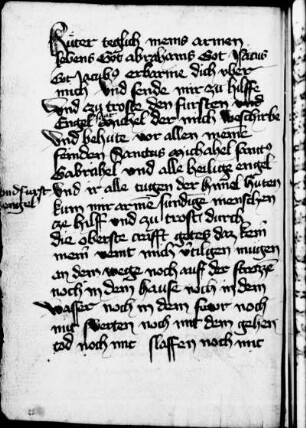 Rüter teglich meins armen
lebens Got abrahams Got Isacus
Got Jacobus erbarme dich vber
mich vnd sende mir zu hilffe
Vnd zu troste den fursten vnd
Engel Michel der mich beschirbe
Vnd behute vor allen meine
feinden Sanctus Michahel sanctus
Gabrahel vnd alle heilige engel
Vnd ir alle tugen der himel huten
vnd furst
engel
kum mir arme sundige menschen
ze hilff vnd zu trost durch
die oberste crafft gotes daz kein
mein veint mich v'tilgen mugen
an dem wege noch auf der strosze
noch in dem hause noch in dem
Wasser noch in dem fewr noch
mit swerten noch mit dem gehen
tod noch mit slaffen noch mit